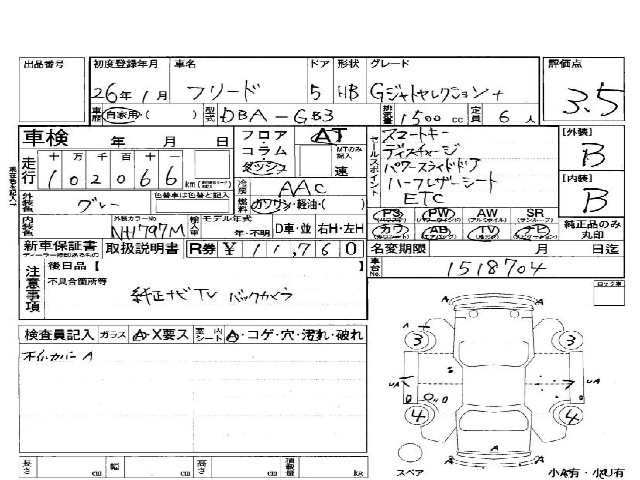 出品番号 初度登録年月 車名 ドア 形状 グレード 評価点
26年1月 フリード 5 HB Gジャストセレクション+ 3.5
車歴 自家用・( ) 型式 DBA-GB3 排気量 1500 cc 定員 6 人
車検 年 月 日 フロア AT スマートキー 【外装】
走行 十 万 千 百 十 一 コラム MTのみ記入 セールスポイント ディスチャージ B
1 0 2 0 6 6 km ダッシュ 速 パワースライドドア
冷房 AAC ハーフレザーシート 【内装】
外装色 グレー 色替車は色替と記入 燃料 ガソリン・軽油・( ) ETC B
内装色 外装カラーNo NH797M 輸入車 モデル年式 PS PW AW SR
年・不明 D車・並 右H・左H カワ AB TV ナビ 純正品のみ丸印
新車保証書 取扱説明書 R券 ¥11,760 名変期限 月 日迄
注意事項 後日品【 】 車台No. 1518704
不具合箇所等
純正ナビTV バックカメラ
検査員記入 ガラス A・X要ス 室内シート A・コゲ・穴・汚れ・破れ
下回カバーA
ロック車
A
A 3 3
UA UA
4 4
A
A
スペア 小A有・小U有
長さ cm 幅 cm 高さ cm 積載量 kg